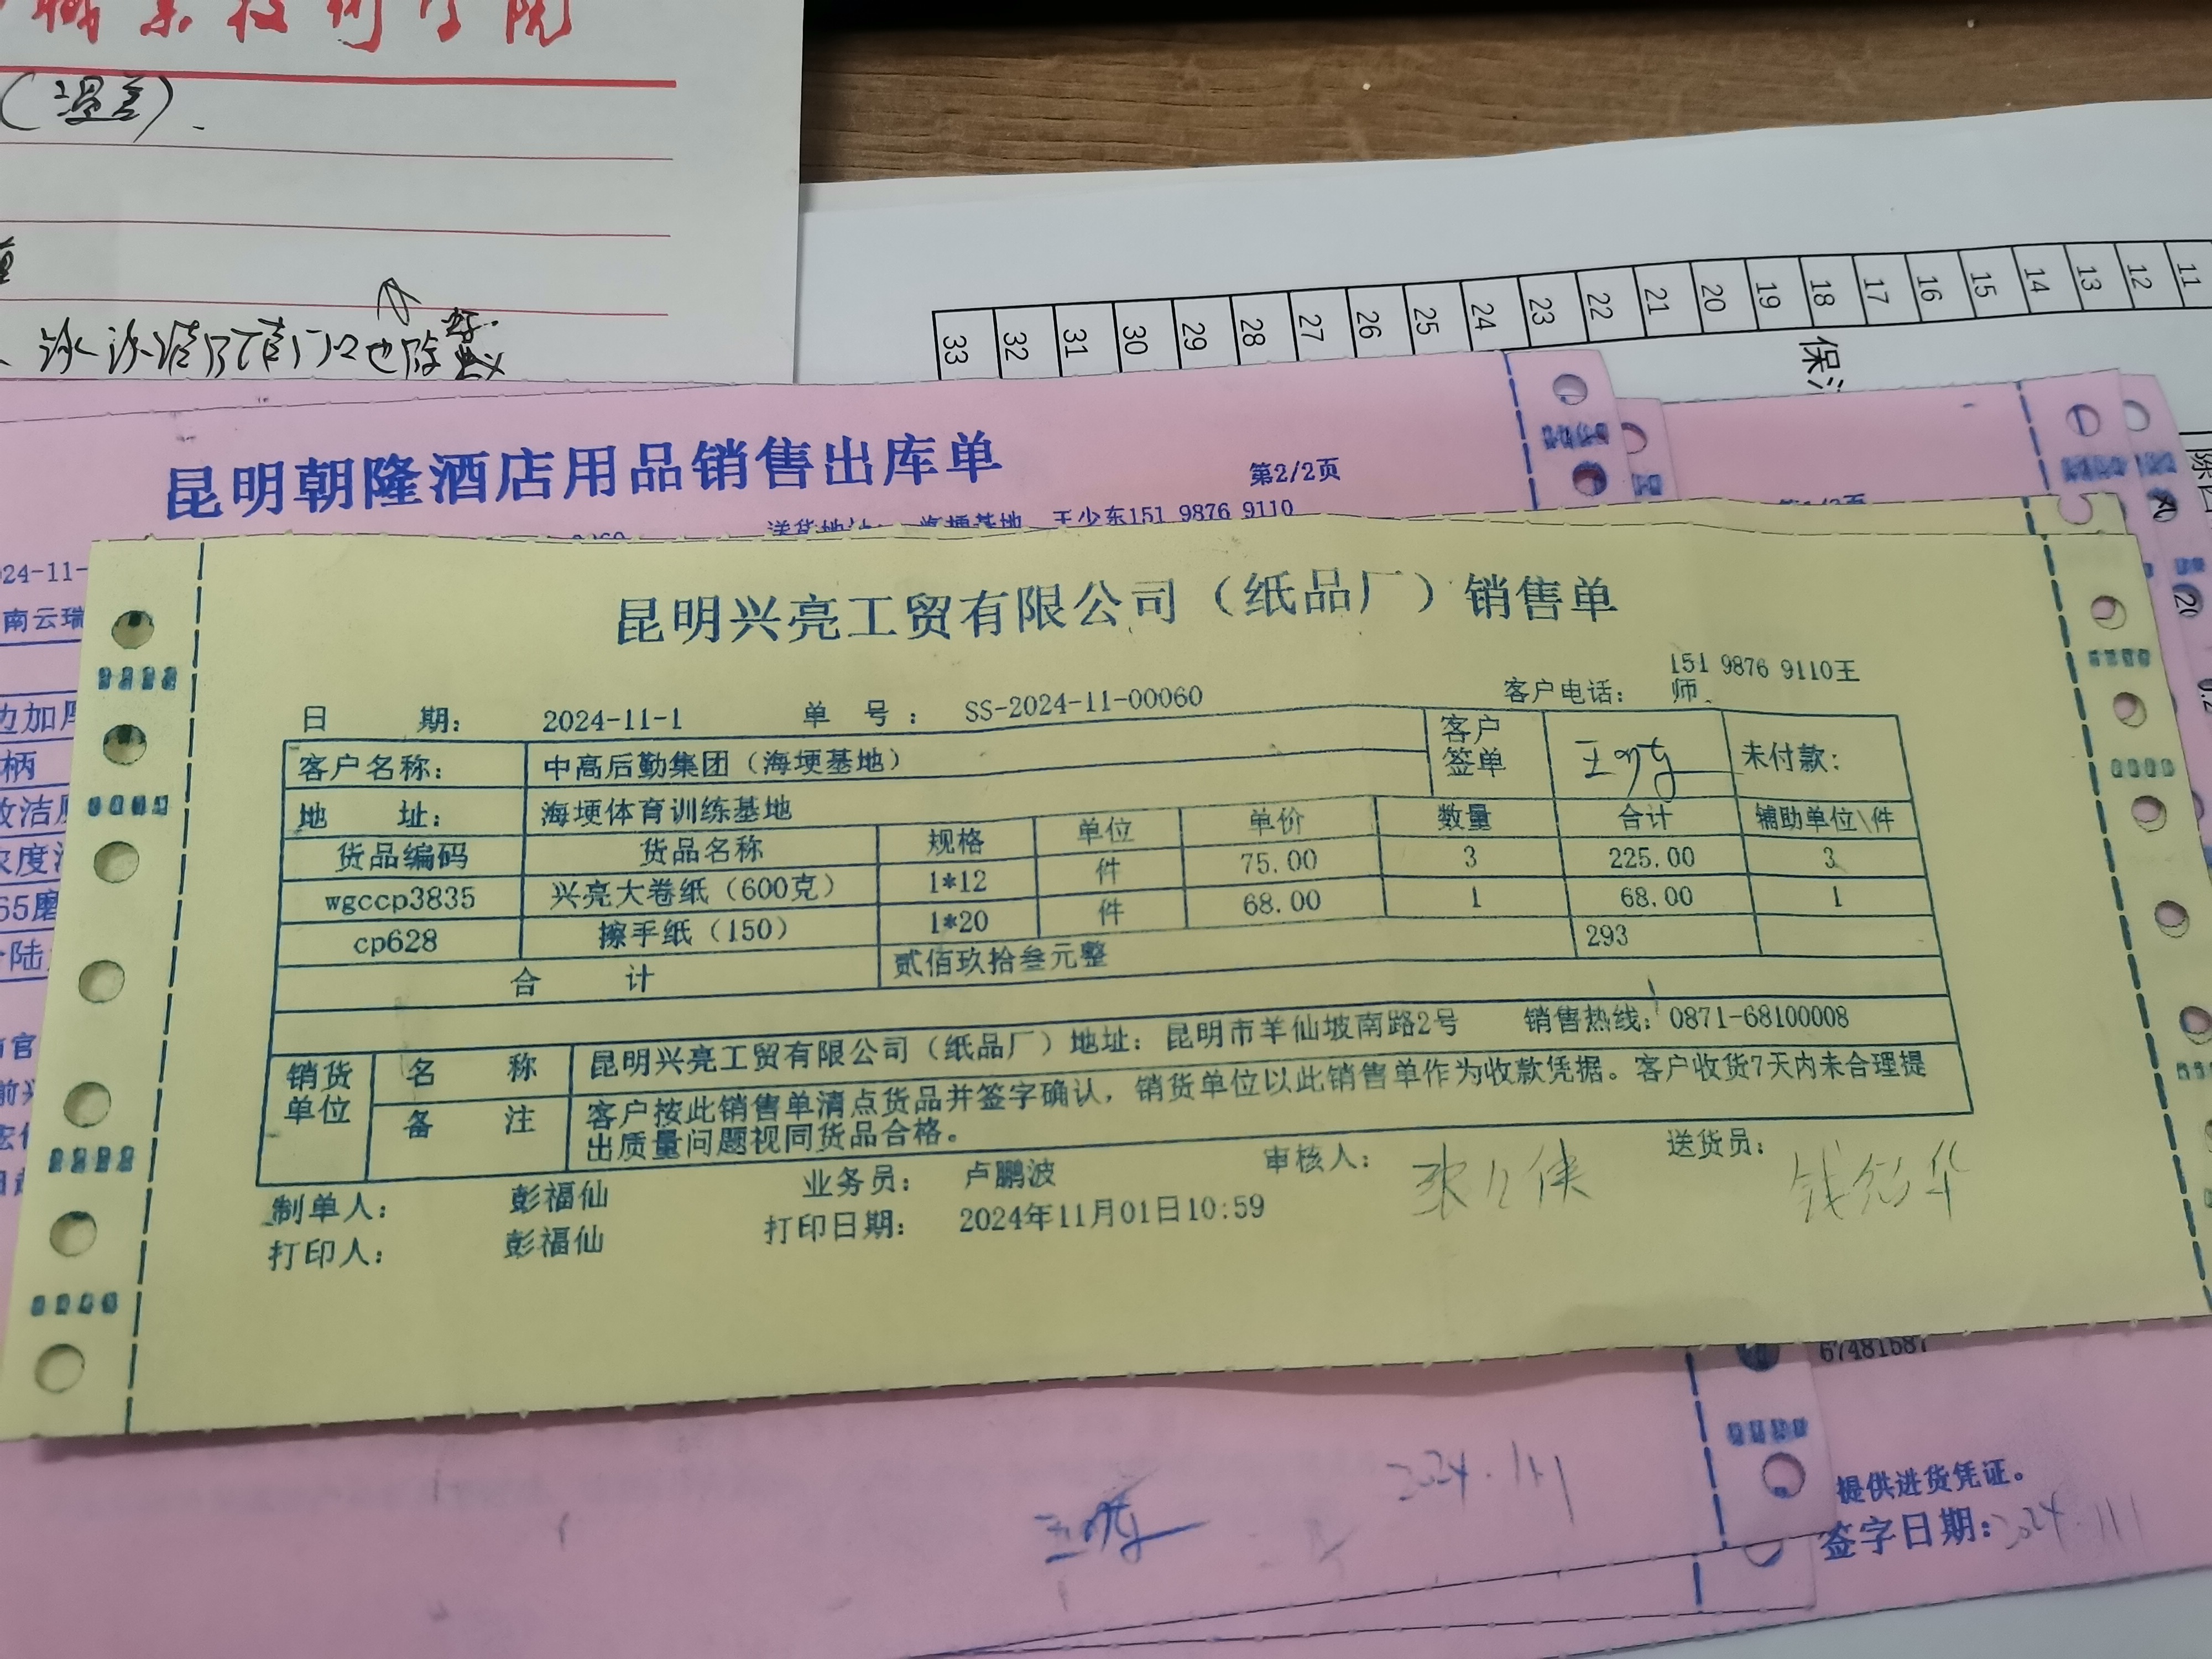 职业技术学院
(温馨).
33 32 31 30 29 28 27 26 25 24 23 22 21 20 19 18 17 16 15 14 13 12 11
保洁
昆明朝隆酒店用品销售出库单
第2/2页
送货地址: 海埂基地 王少东151 9876 9110
24-11-
南云瑞
边加厚
柄
昆明兴亮工贸有限公司（纸品厂）销售单
日 期: 2024-11-1 单 号: SS-2024-11-00060 客户电话: 151 9876 9110王师
客户名称: 中高后勤集团（海埂基地） 客户签单 未付款:
地 址: 海埂体育训练基地
货品编码 货品名称 规格 单位 单价 数量 合计 辅助单位\件
wgccp3835 兴亮大卷纸（600克） 1*12 件 75.00 3 225.00 3
cp628 擦手纸（150） 1*20 件 68.00 1 68.00 1
合 计 贰佰玖拾叁元整 293
销货单位 名 称 昆明兴亮工贸有限公司（纸品厂）地址: 昆明市羊仙坡南路2号 销售热线: 0871-68100008
备 注 客户按此销售单清点货品并签字确认, 销货单位以此销售单作为收款凭据。客户收货7天内未合理提
出质量问题视同货品合格。
制单人: 彭福仙 业务员: 卢鹏波 审核人: 送货员:
打印人: 彭福仙 打印日期: 2024年11月01日10:59
67481587
2024.11.1
提供进货凭证。
签字日期:2024.11.1